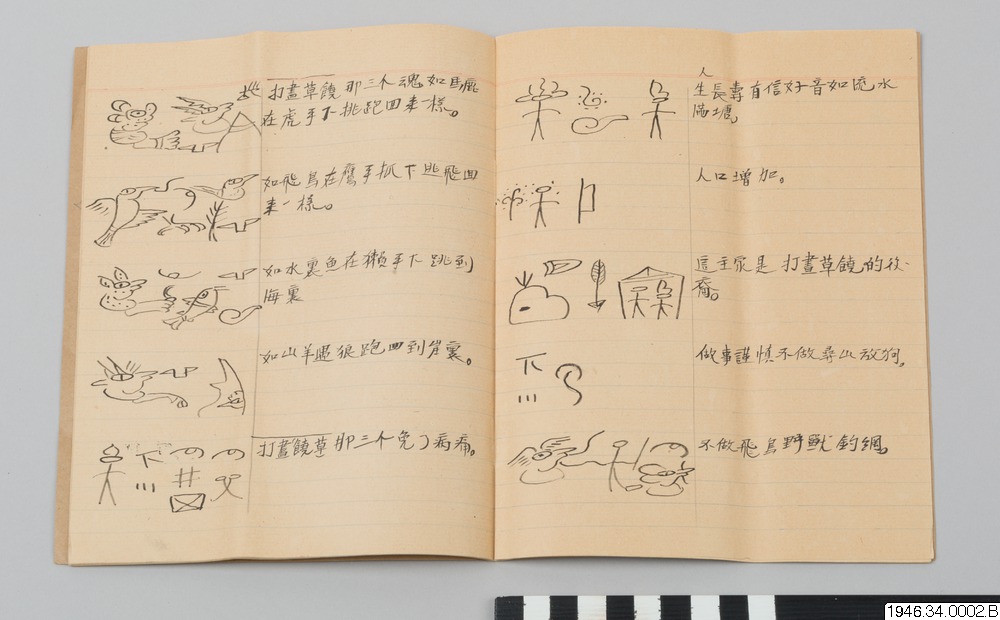 打畫草饒那三个魂如馬鹿
在虎手下挑跑回来一樣。
如飛鳥在鷹手抓下逃飛回
来一様。
如水裏魚在獺手下跳到
海裏
如山羊遇狼跑回到岩裏。
打畫饒草那三个免了病痛。
人
生長壽有信好音如流水
滿塘。
人口增加。
這主家是打畫草饒的後
裔。
做事謹慎不做尋山放狗。
不做飛鳥野獸釣網。
1946.34.0002.B